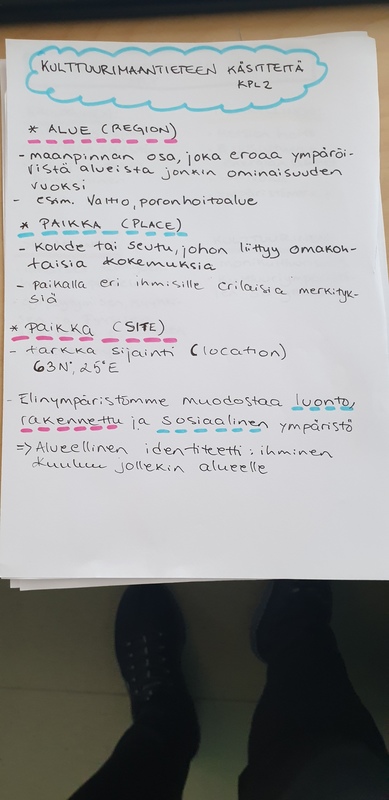 KULTTUURIMAANTIETEEN KÄSITTEITÄ
KPL2
* ALUE (REGION)
- maanpinnan osa, joka eroaa ympäröi-
vistä alueista jonkin ominaisuuden
vuoksi
- esim. Valtio, poronhoitoalue
* PAIKKA (PLACE)
- Kohde tai seutu, johon liittyy omakoh-
taisia kokemuksia
- paikalla eri ihmisille erilaisia merkityk-
siä
* PAIKKA (SITE)
- tarkka sijainti (location)
63°N, 25°E
- Elinympäristömme muodostaa luonto,
rakennettu ja sosiaalinen ympäristö
=> Alueellinen identiteetti: ihminen
kuuluu jollekin alueelle